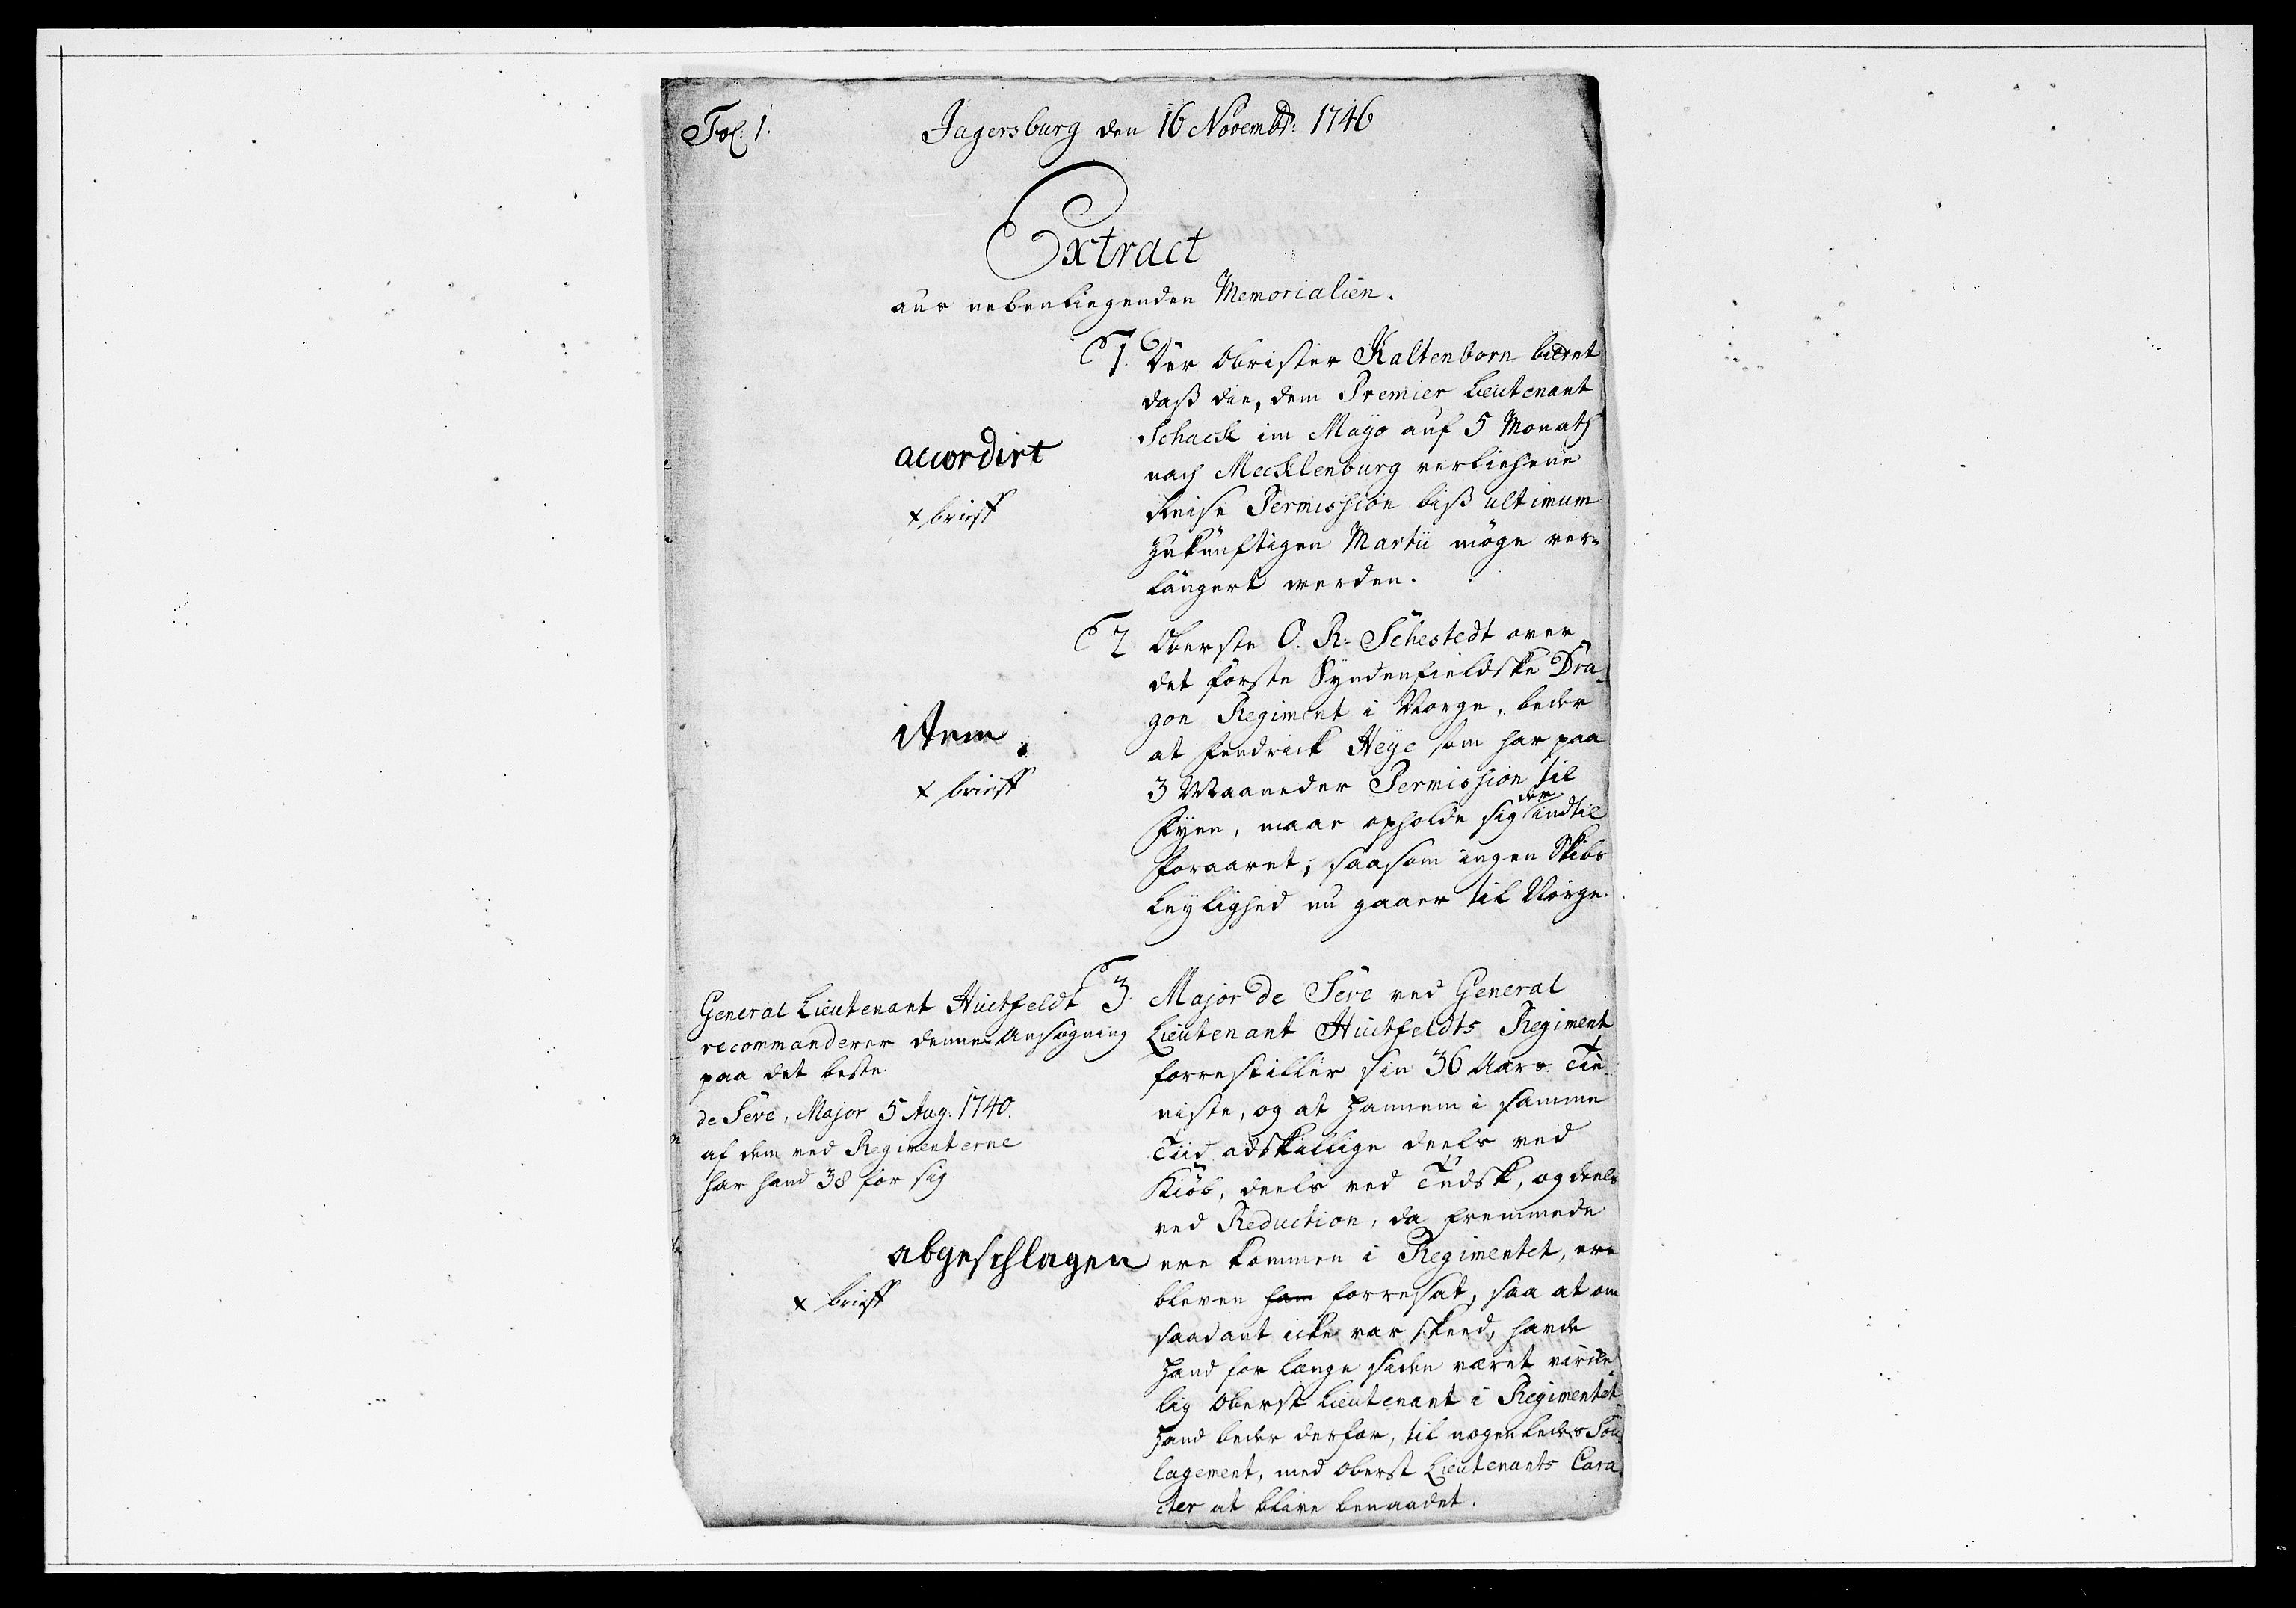 Fol: 1.
Jagersburg den 16 Novembr: 1746
Extract
aus nebenliegenden Memorialien.
1. Der Obrister Kaltenborn bittet
daß die, dem Premier Lieutenant
Schack im Mayo auf 5 Monath
nach Mecklenburg verliehene
Reise Permission biß ultimum
zukünftigen Martii möge ver=
längert werden.
accordirt
x brieff
2 Oberste C. R. Sehestedt over
det første Syndenfieldske Dra-
gon Regiment i Norge, beder
at Fendrick Heye som har paa
3 Maaneder Permission til
Fyen, maae opholde sig der indtil
Foraaret, saasom ingen Skibs
Leylighed nu gaaer til Norge.
item.
x brieff
3. Major de Seve ved General
Lieutenant Huitfeldts Regiment,
forrestiller sin 36 Aars Tie-
niste, og at hannem i samme
Tiid adskillige deels ved
Kiøb, deels ved Tudsk, og deels
ved Reduction, da fremmede
ere kommen i Regimentet, ere
bleven ham forresat, saa at om
saadant icke var skeed, havde
hand for længe siden været virke
lig Oberst Lieutenant i Regimentet
hand beder derfor, til nogenledes Sou
lagement, med Oberst Lieutenants Cara
cter at blive benaadet.
General Lieutenant Huitfeldt
recommanderer denne Ansøgning
paa det beste.
de Seve, Major 5 Aug. 1740.
af dem ved Regimenterne
har hand 38 for sig
abgeschlagen
x brieff